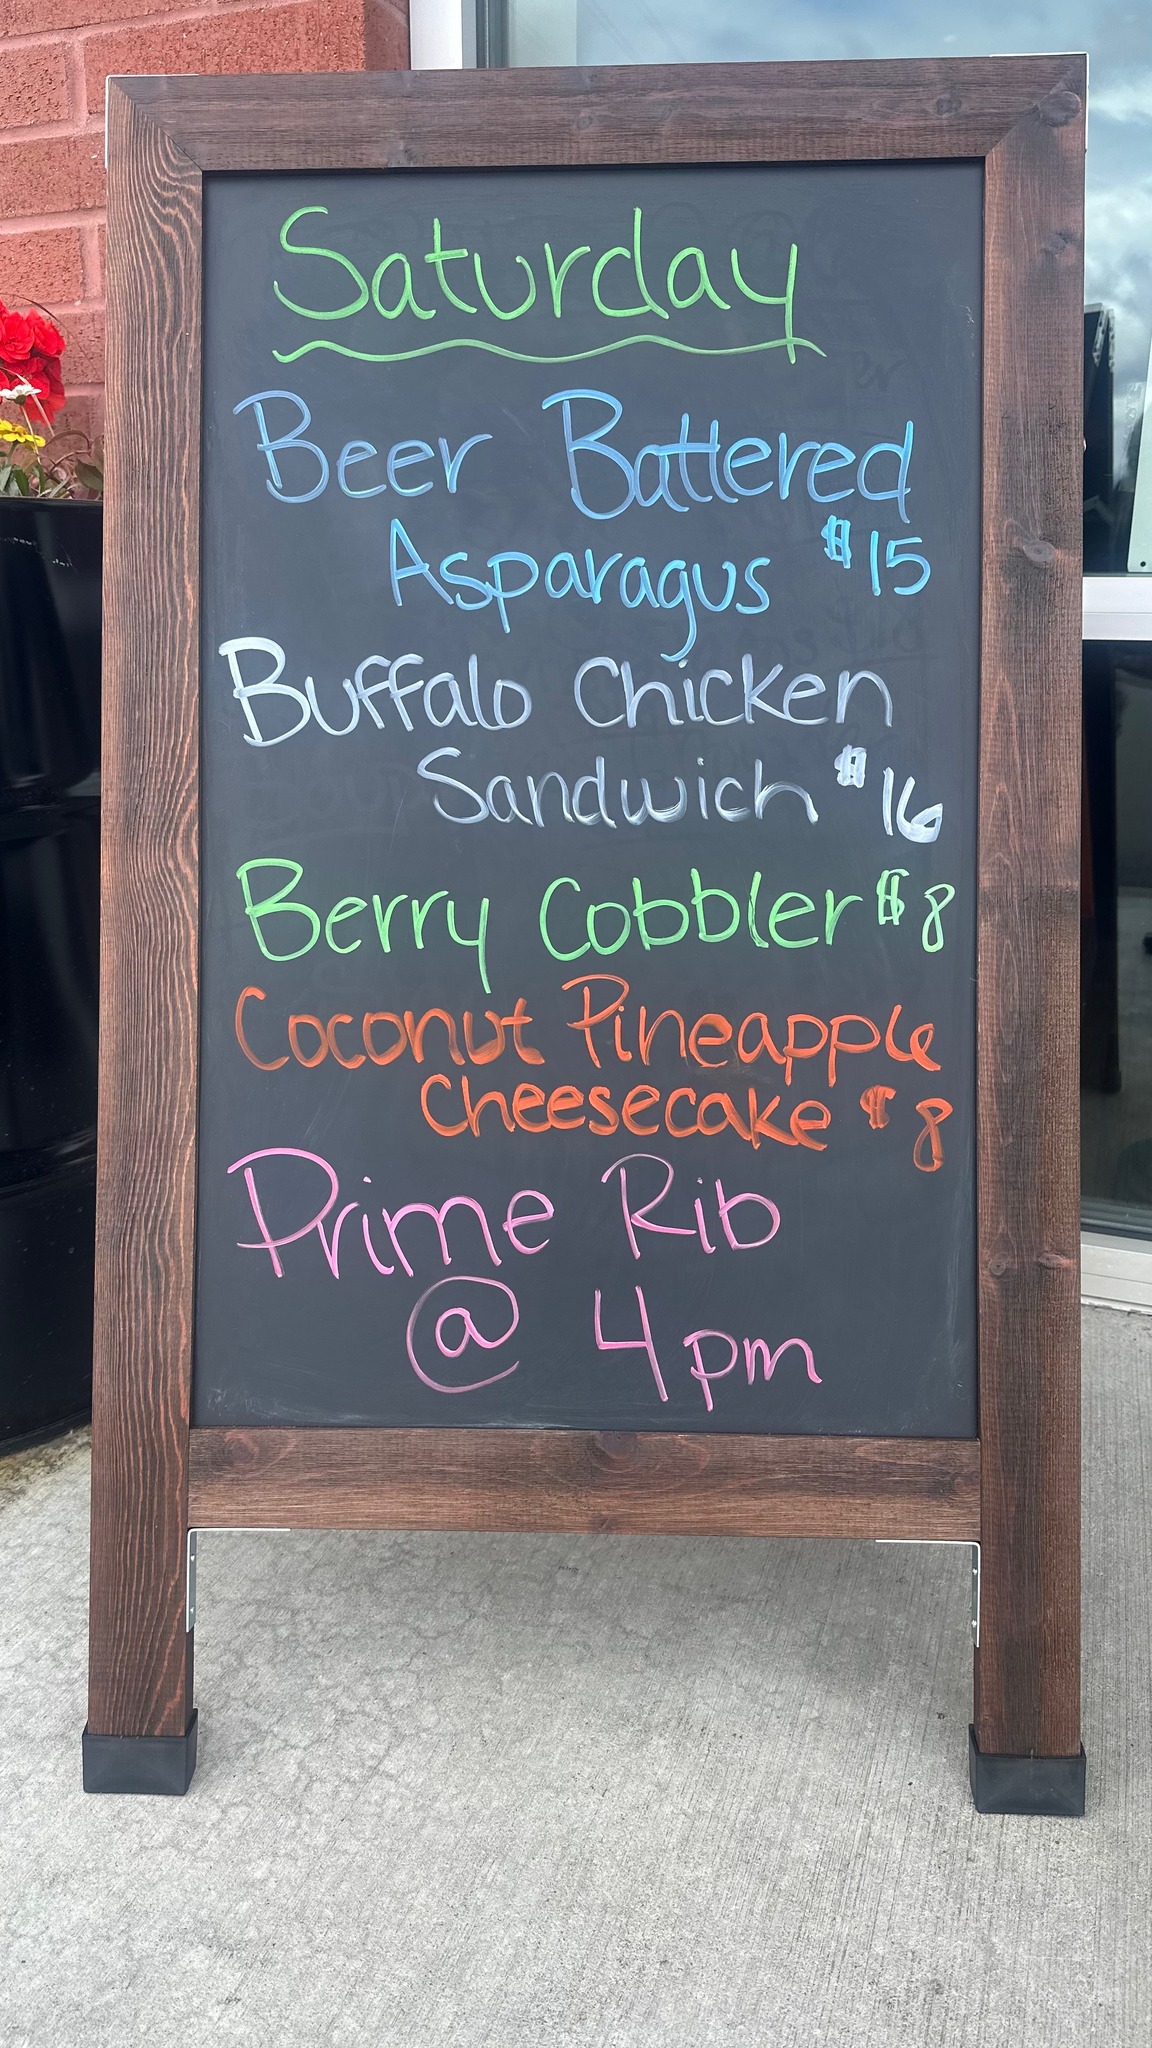 Saturday
Beer Battered
Asparagus $15
Buffalo Chicken
Sandwich $16
Berry Cobbler $8
Coconut Pineapple
Cheesecake $8
Prime Rib
@ 4pm